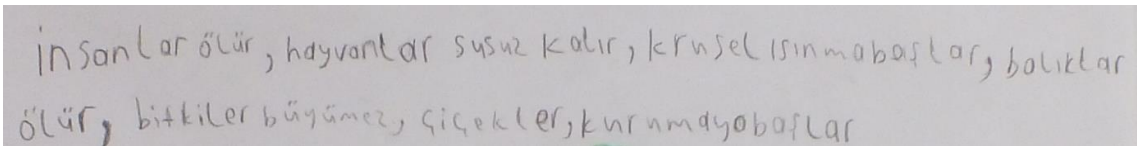 insanlar ölür, hayvanlar susuz kalır, krusel ısınmabaşlar, balıklar
ölür, bitkiler büyümez, çiçekler, kurumayabaşlar